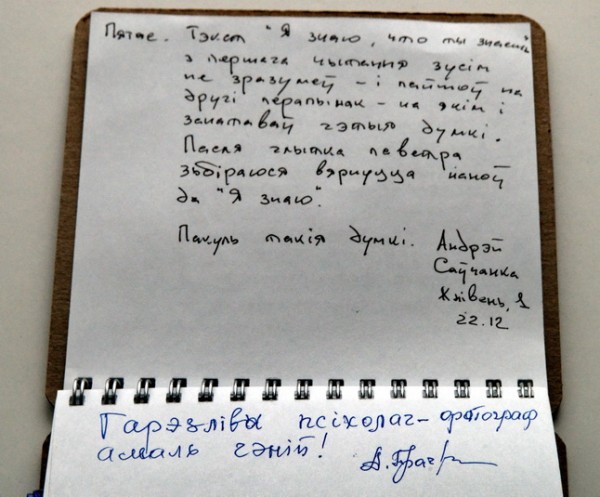 Пятае. Тэкст "Я знаю, что ты знаешь"
з першага чытання зусім
не зразумеў - і пайшоў на
другі перапынак - на якім і
занатаваў гэтыя думкі.
Пасля глытка паветра
збіраюся вярнуцца наноў
да "Я знаю".
Пакуль такія думкі. Андрэй
Саўчанка
Жнівень, 1
22.12
Гарэзлівы псіхолаг- фатограф
амаль гэній!